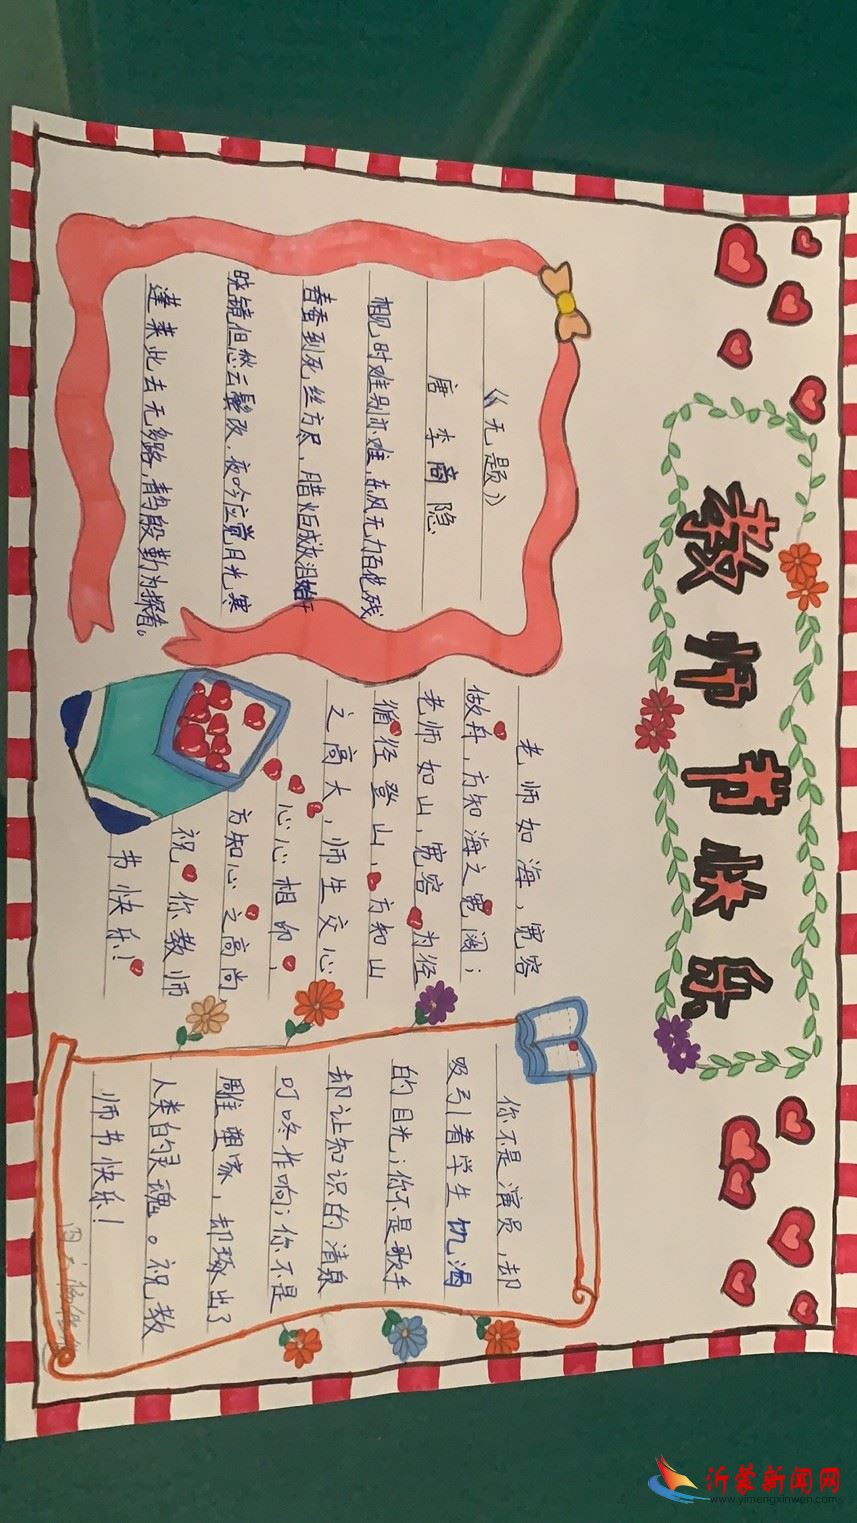 教师节快乐
《无题》
唐 李商隐
相见时难别亦难,东风无力百花残
春蚕到死丝方尽,腊炬成灰泪始干
晓镜但愁云鬓改,夜吟应觉月光寒
蓬莱此去无多路,青鸟殷勤为探看。
老师如海,宽容
做舟,方知海之宽阔;
老师如山,宽容为径
循径登山,方知山
之高大,师生交心
心心相印,
方知心之高尚
祝你教师
节快乐!
你不是演员,却
吸引着学生饥渴
的目光;你不是歌手
却让知识的清泉
叮咚作响;你不是
雕塑家,却琢出了
人类的灵魂。祝教
师节快乐!
沂蒙新闻网
www.yimengxinwen.com